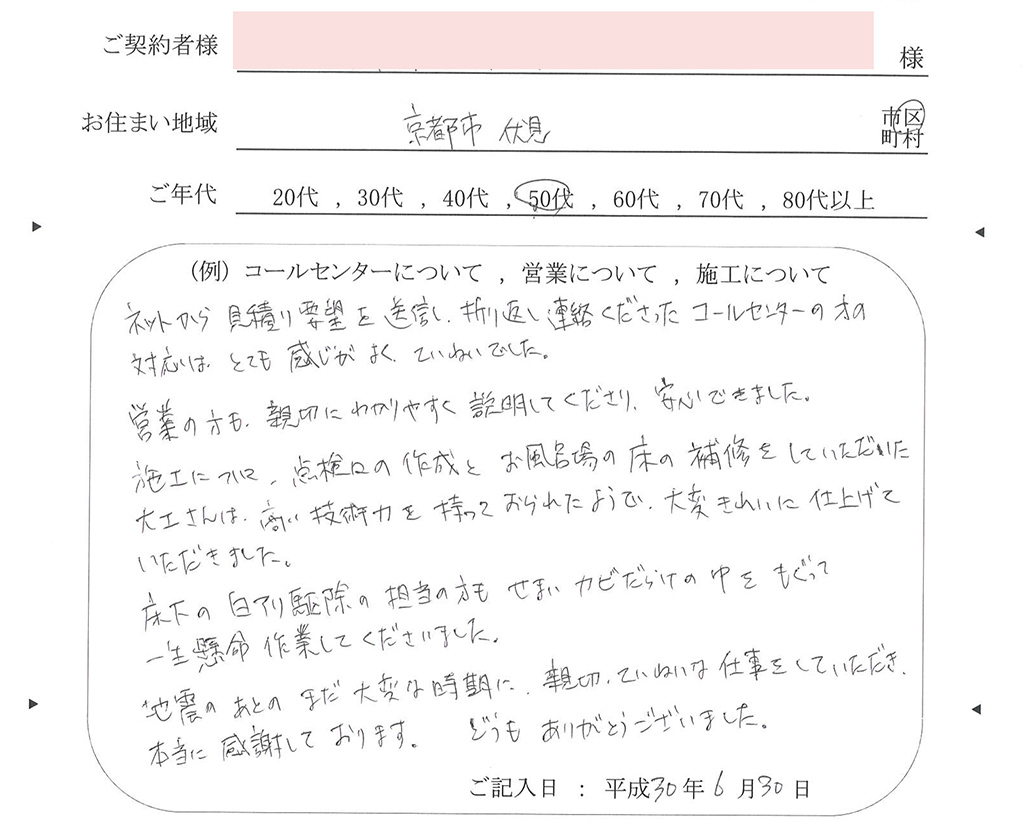 ご契約者様 様
お住まい地域 京都市 伏見 市区町村
ご年代 20代 , 30代 , 40代 , 50代 , 60代 , 70代 , 80代以上
(例) コールセンターについて , 営業について , 施工について
ネットから 見積り要望を送信し、折り返し連絡くださった コールセンターの方の
対応は、とても 感じがよく、ていねいでした。
営業の方も、親切にわかりやすく 説明してくださり、安心できました。
施工について、点検口の作成と お風呂場の床の補修をしていただいた
大工さんは、高い技術力を持っておられたようで、大変きれいに仕上げて
いただきました。
床下の白アリ駆除の担当の方も せまい カビだらけの中を もぐって
一生懸命作業してくださいました。
地震のあとの まだ 大変な時期に、親切、ていねいな仕事をしていただき、
本当に感謝しております。 どうも ありがとうございました。
ご記入日 : 平成30年 6月30日